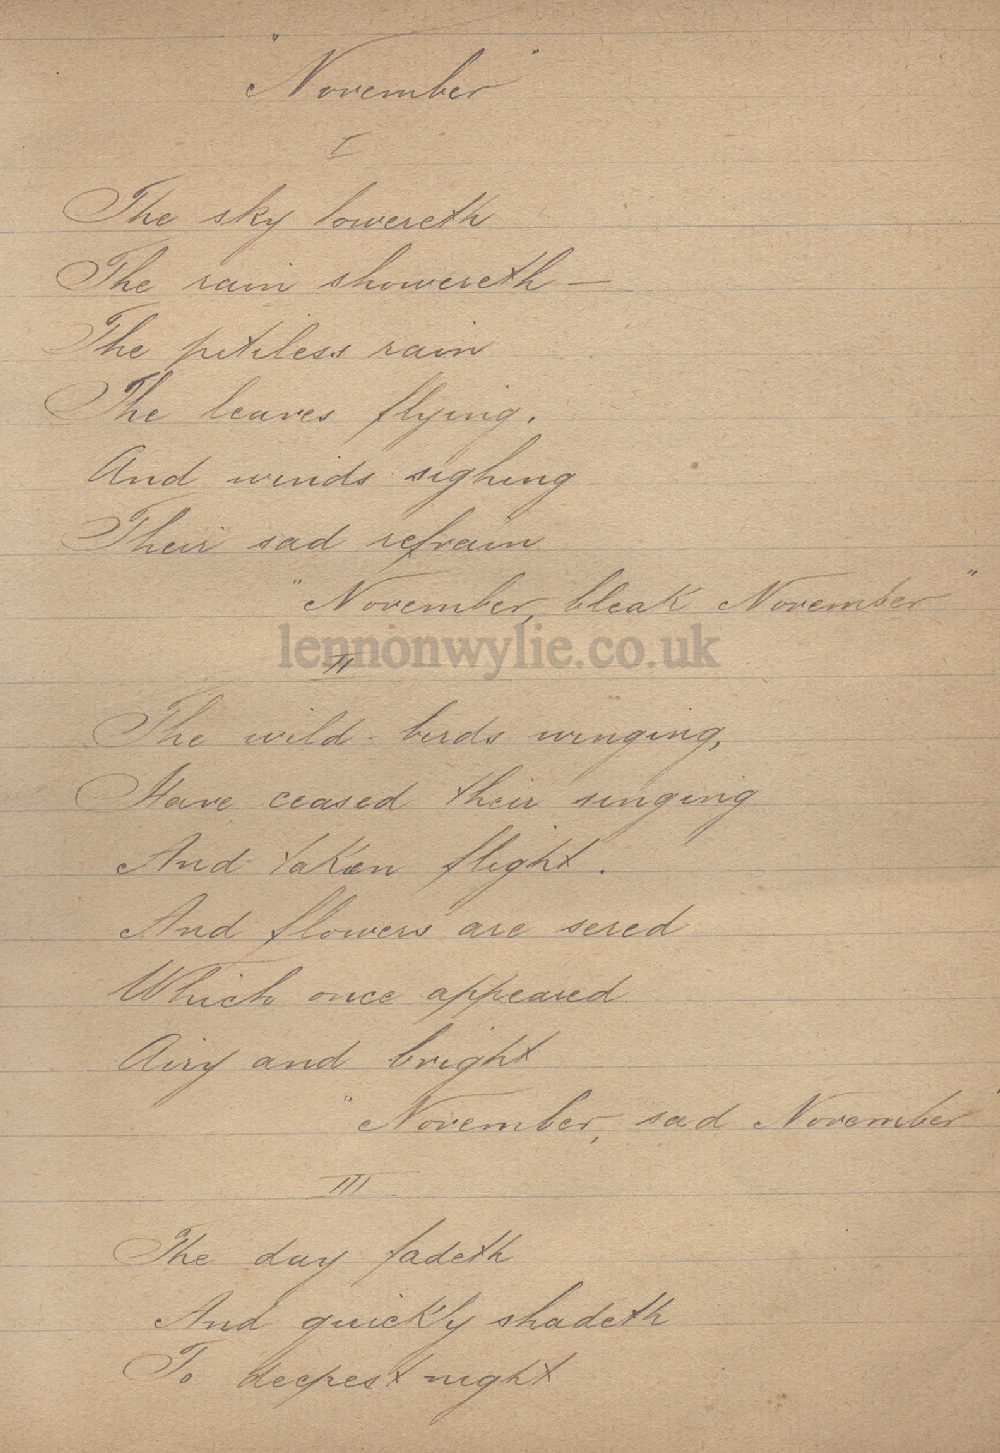 "November"
I
The sky lowereth
The rain showereth —
The pitiless rain
The leaves flying.
And winds sighing
Their sad refrain
"November, bleak November"
lennonwylie.co.uk
II
The wild-birds winging,
Have ceased their singing
And taken flight.
And flowers are sered
Which once appeared
Airy and bright
"November, sad November"
III
The day fadeth
And quickly shadeth
To deepest night